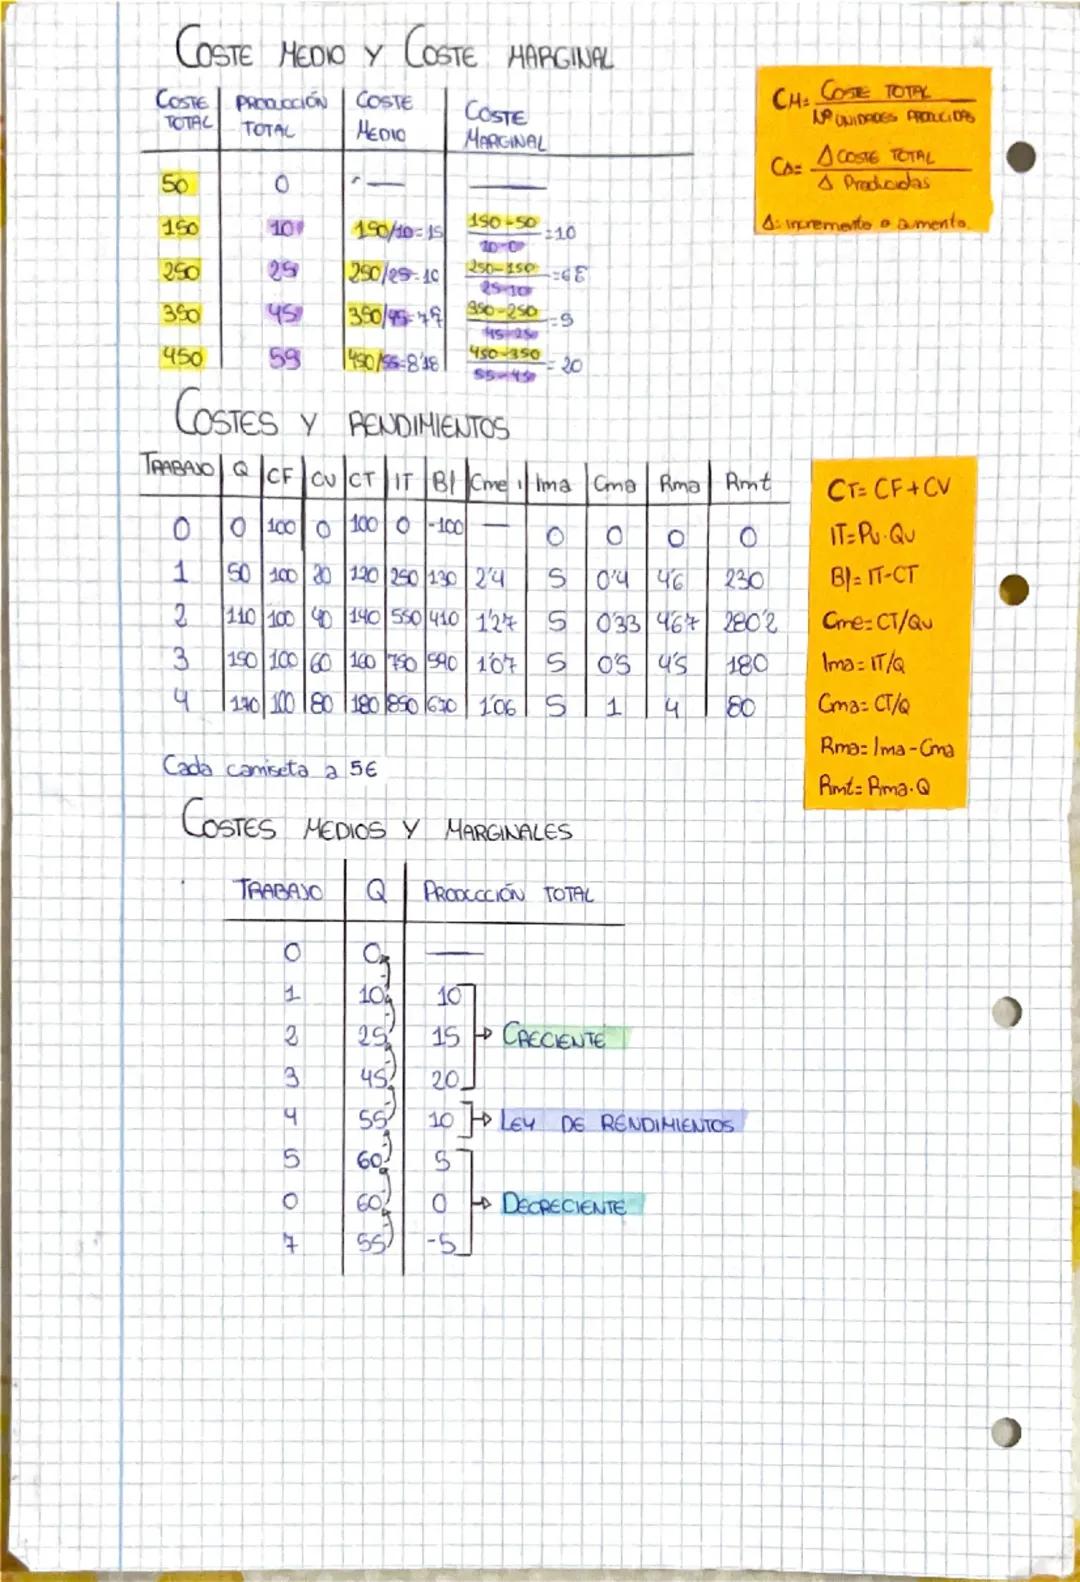 COSTE MEDIO Y COSTE MARGINAL
COSTE TOTAL | PRODUCCIÓN TOTAL | COSTE MEDIO | COSTE MARGINAL
50 | 0 | — | —
150 | 10 | 150/10=15 | 150-50 / 10-0 =10
250 | 25 | 250/25=10 | 250-150 / 25-10
350 | 45 | 350/45= | 350-250 / 45-25 =5
450 | 55 | 450/55=8'18 | 450-350 / 55-45 = 20
CM= COSTE TOTAL / Nº UNIDADES PRODUCIDAS
CΔ= Δ COSTE TOTAL / Δ Producidas
Δ: incremento o aumento.
COSTES Y RENDIMIENTOS
TRABAJO | Q | CF | CV | CT | IT | B/ | Cme | Ima | Cma | Rma | Rmt
0 | 0 | 100 | 0 | 100 | 0 | -100 | — | 0 | 0 | 0 | 0
1 | 50 | 100 | 20 | 120 | 250 | 130 | 2'4 | 5 | 0'4 | 4'6 | 230
2 | 110 | 100 | 40 | 140 | 550 | 410 | 1'27 | 5 | 0'33 | 4'67 | 280'2
3 | 150 | 100 | 60 | 160 | 750 | 590 | 1'07 | 5 | 0'5 | 4'5 | 180
4 | 170 | 100 | 80 | 180 | 850 | 670 | 1'06 | 5 | 1 | 4 | 80
CT= CF+CV
IT=Pv·Qv
B/= IT-CT
Cme=CT/Qv
Ima= IT/Q
Cma= CT/Q
Rma= Ima-Cma
Rmt= Rma·Q
Cada camiseta a 5€
COSTES MEDIOS Y MARGINALES
TRABAJO | Q | PRODUCCIÓN TOTAL
0 | 0 | —
1 | 10 | 10
2 | 25 | 15 → CRECIENTE
3 | 45 | 20
4 | 55 | 10 → LEY DE RENDIMIENTOS
5 | 60 | 5
0 | 60 | 0 → DECRECIENTE
7 | 55 | -5